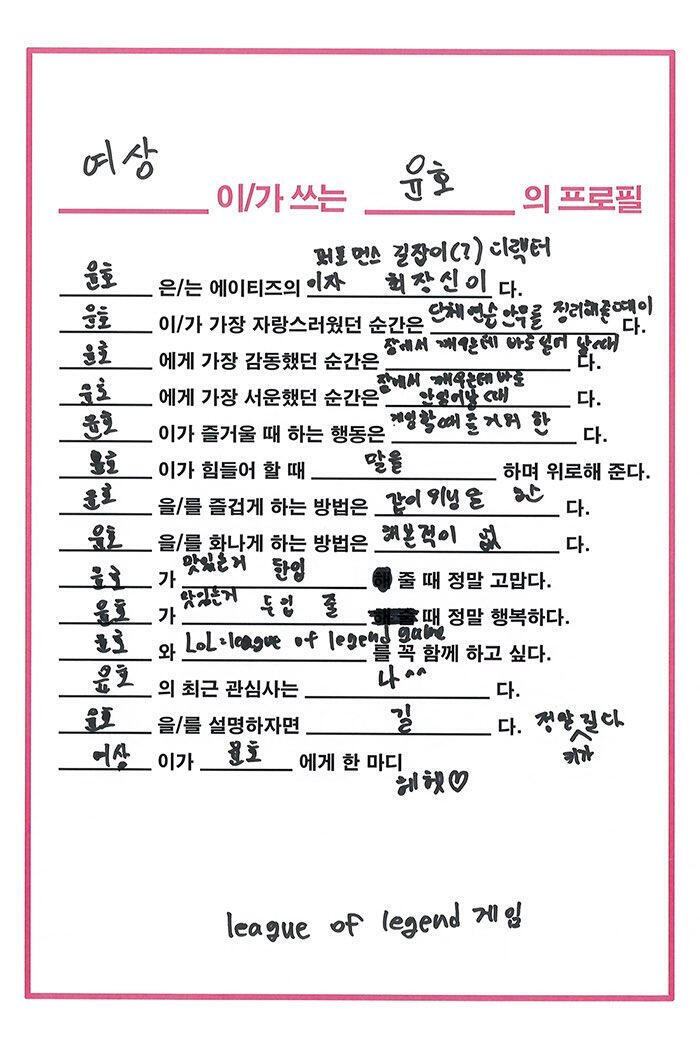 여상 이/가 쓰는 윤호 의 프로필
퍼포먼스 길잡이(?) 디렉터
윤호 은/는 에이티즈의 이자 최장신이 다.
윤호 이/가 가장 자랑스러웠던 순간은 단체연습 안무를 정리해줄때이 다.
윤호 에게 가장 감동했던 순간은 잠에서 깨우는데 바로 일어 날때 다.
윤호 에게 가장 서운했던 순간은 잠에서 깨우는데 바로 안일어날때 다.
윤호 이가 즐거울 때 하는 행동은 게임할때 즐거워 한 다.
윤호 이가 힘들어 할 때 말을 하며 위로해 준다.
윤호 을/를 즐겁게 하는 방법은 같이 위닝을 한 다.
윤호 을/를 화나게 하는 방법은 해본적이 없 다.
윤호 가 맛있는거 한입 줄 때 정말 고맙다.
윤호 가 맛있는거 두입 줄 때 정말 행복하다.
윤호 와 LoL:league of legend game 를 꼭 함께 하고 싶다.
윤호 의 최근 관심사는 나^^ 다.
윤호 을/를 설명하자면 길 다. 정말 길다
키가
여상 이가 윤호 에게 한 마디
헤헷♡
league of legend 게임